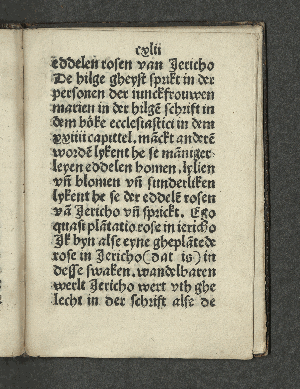 cxlii
eddelen rosen van Jericho
De hilge gheyst sprikt in der
personen der iunckfrouwen
marien in der hilgē schrift in
dem bōke ecclesiastici in dem
xxiiii capittel. māckt anderē
wordē lykent he se māniger
leyen eddelen bomen. lylien
vñ blomen vñ sunderliken
lykent he se der eddelē rosen
vā Jericho vñ sprickt. Ego
quasi plātatio rose in iericho
Jk byn alse eyne gheplātede
rose in Jericho (dat is) in
desse swaken. wandelbaren
werlt Jericho wert vth ghe
lecht in der schrift alse de